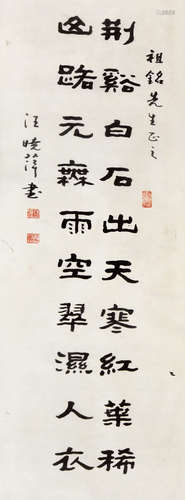 祖銘先生正之
荆谿白石出天寒紅葉稀
山路元無雨空翠濕人衣
汪曉書